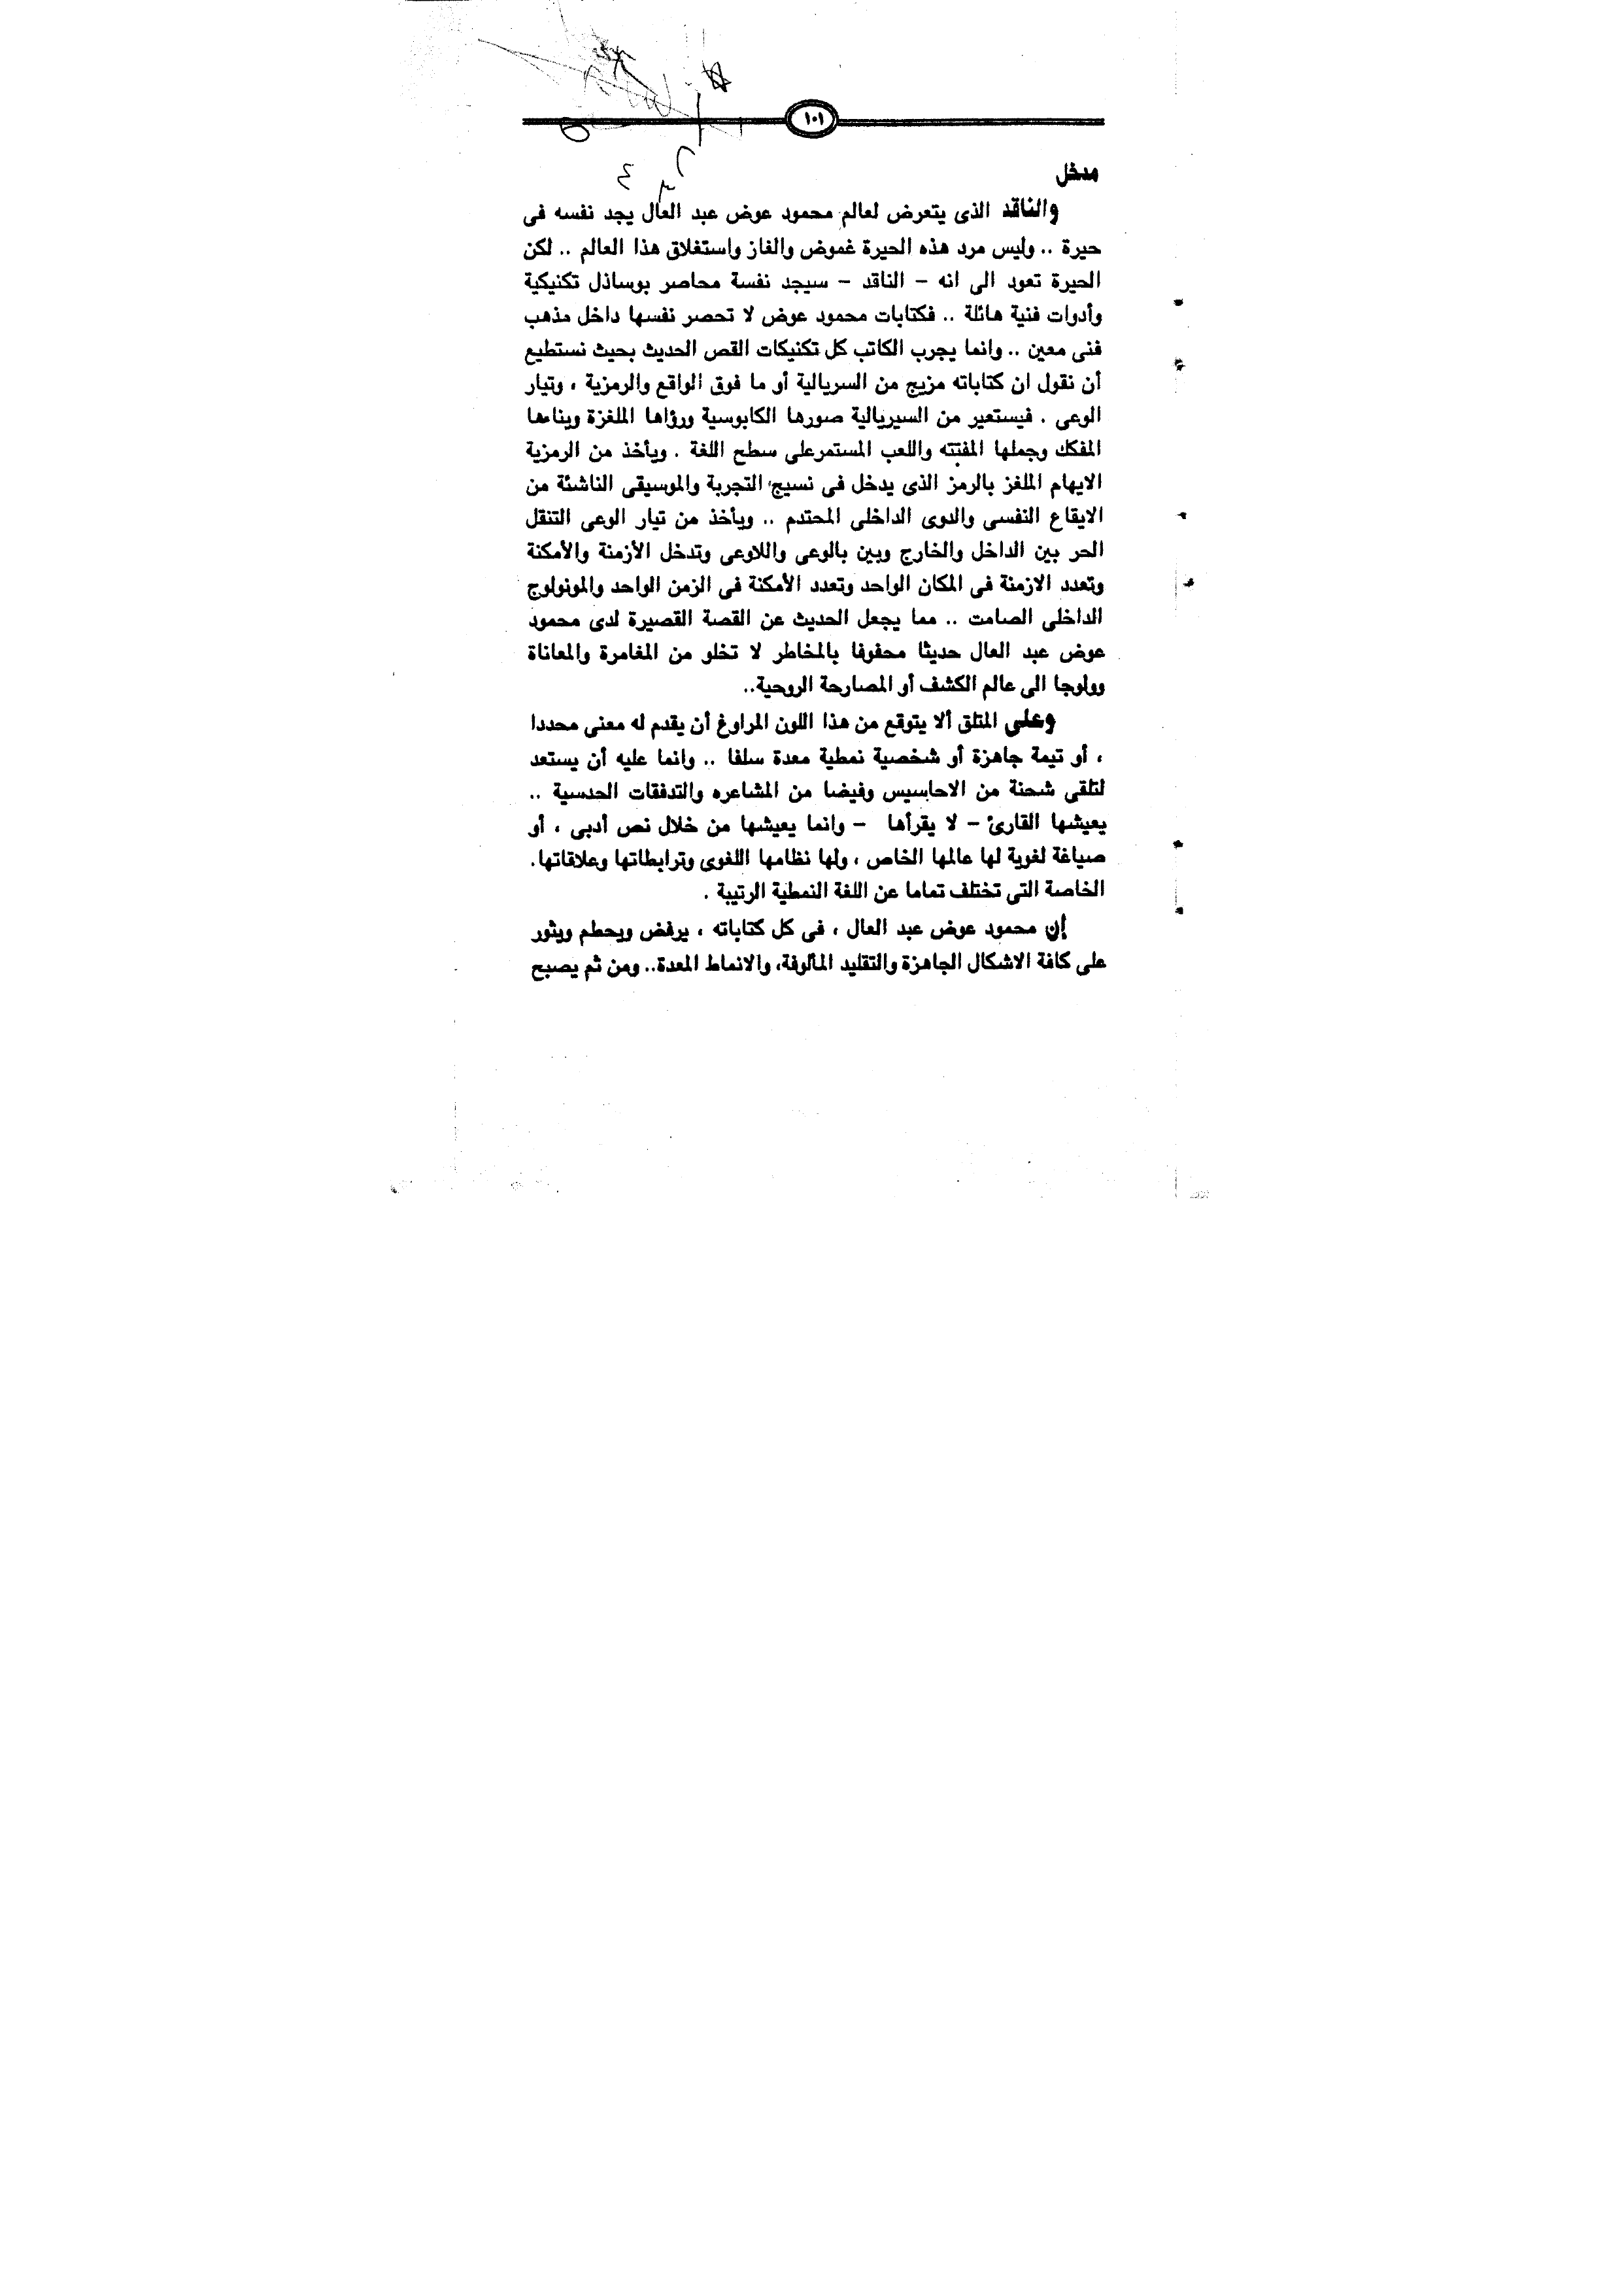 ١٠١
مدخل
والناقد الذى يتعرض لعالم محمود عوض عبد العال يجد نفسه فى
حيرة .. وليس مرد هذه الحيرة غموض والغاز واستغلاق هذا العالم .. لكن
الحيرة تعود الى انه – الناقد – سيجد نفسة محاصر بوسائل تكنيكية
وأدوات فنية هائلة .. فكتابات محمود عوض لا تحصر نفسها داخل مذهب
فنى معين .. وانما يجرب الكاتب كل تكنيكات القص الحديث بحيث نستطيع
أن نقول ان كتاباته مزيج من السريالية أو ما فوق الواقع والرمزية ، وتيار
الوعى . فيستعير من السيريالية صورها الكابوسية ورؤاها الملغزة وبناءها
المفكك وجملها المفتته واللعب المستمرعلى سطح اللغة . ويأخذ من الرمزية
الايهام الملغز بالرمز الذى يدخل فى نسيج التجربة والموسيقى الناشئة من
الايقاع النفسى والدوى الداخلى المحتدم .. ويأخذ من تيار الوعى التنقل
الحر بين الداخل والخارج وبين بالوعى واللاوعى وتدخل الأزمنة والأمكنة
وتعدد الازمنة فى المكان الواحد وتعدد الأمكنة فى الزمن الواحد والمونولوج
الداخلى الصامت .. مما يجعل الحديث عن القصة القصيرة لدى محمود
عوض عبد العال حديثا محفوفا بالمخاطر لا تخلو من المغامرة والمعاناة
وولوجا الى عالم الكشف أو المصارحة الروحية..
وعلى المتلق ألا يتوقع من هذا اللون المراوغ أن يقدم له معنى محددا
، أو تيمة جاهزة أو شخصية نمطية معدة سلفا .. وانما عليه أن يستعد
لتلقى شحنة من الاحاسيس وفيضا من المشاعره والتدفقات الحدسية ..
يعيشها القارئ – لا يقرأها – وانما يعيشها من خلال نص أدبى ، أو
صياغة لغوية لها عالمها الخاص ، ولها نظامها اللغوى وترابطاتها وعلاقاتها.
الخاصة التى تختلف تماما عن اللغة النمطية الرتيبة .
إن محمود عوض عبد العال ، فى كل كتاباته ، يرفض ويحطم ويثور
على كافة الاشكال الجاهزة والتقليد المألوفة، والانماط المعدة.. ومن ثم يصبح